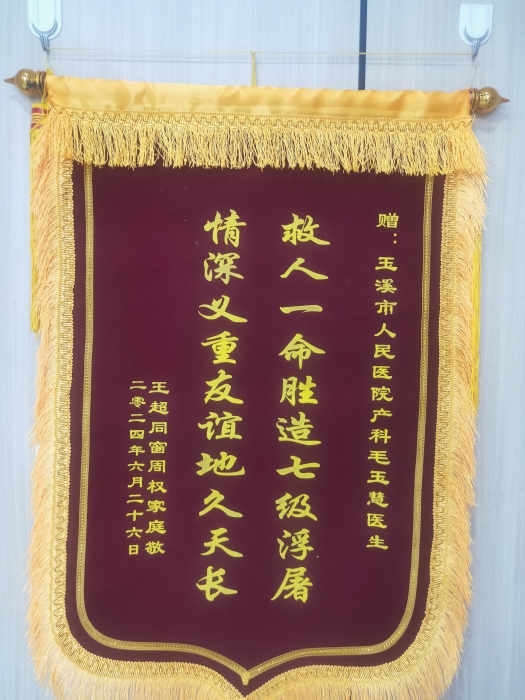 赠：玉溪市人民医院产科毛玉慧医生
救人一命胜造七级浮屠
情深义重友谊地久天长
王超同窗周权家庭敬
二零二四年六月二十六日